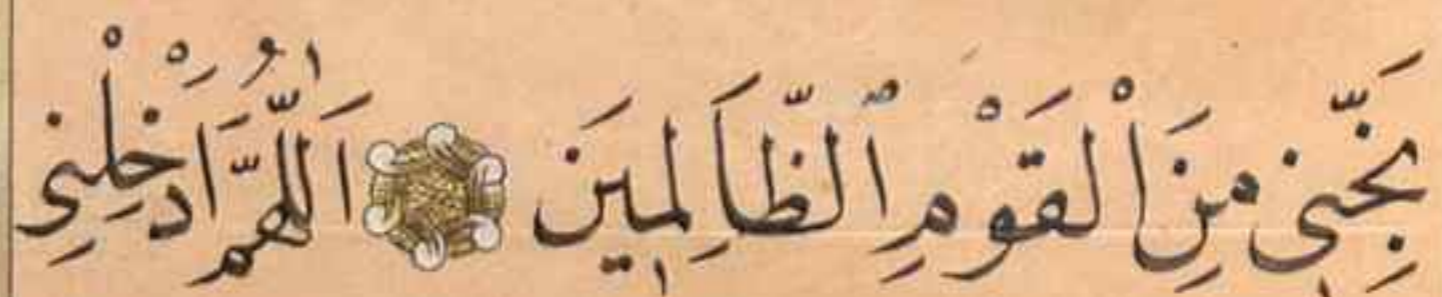 نَجِّنِي مِنَ الْقَوْمِ ٱلظَّالِمِينَ اَللّٰهُمَّ اَدْخِلْنِي